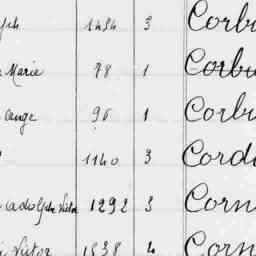 1454 3 Corbu
Marie 78 1 Corbu
Ange 98 1 Corbu
1140 3 Cordi
Adolphe Victor 1292 3 Corn
Victor 1538 4 Corn